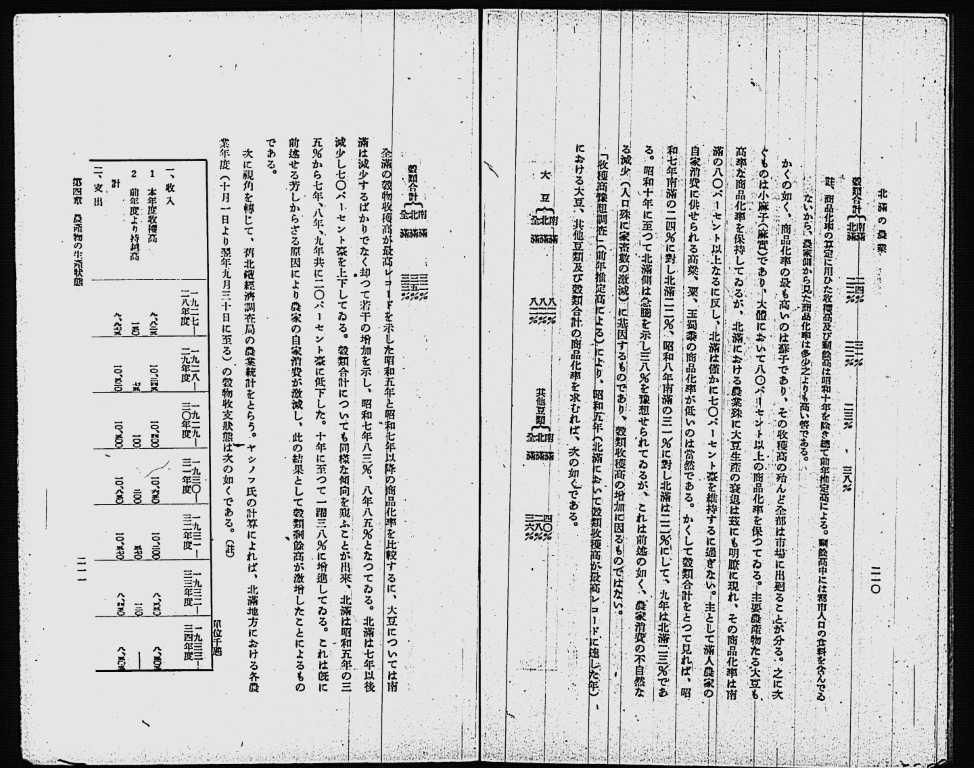 北滿の農業
二二〇
穀類合計
南滿
北滿
二四%
三一%
三八%
註、商品化率の算定に用ひた收穫高及び剩餘高は昭和十年を除き總て前年推定高による。剩餘高中には都市人口の食料を含んでゐ
ないから、農家側から見た商品化率は多少之よりも高い筈である。
かくの如く、商品化率の最も高いのは蘇子であり、その收穫高の殆んど全部は市場に出廻ることが分る。之に次
ぐものは小麻子(麻實)であり、大體において八〇パーセント以上の商品化率を保つてゐる。主要農産物たる大豆も
高率な商品化率を保持してゐるが、北滿における農業殊に大豆生産の衰退は茲にも明瞭に現れ、その商品化率は南
滿の八〇パーセント以上なるに反し、北滿は僅かに七〇パーセント臺を維持するに過ぎない。主として滿人農家の
自家消費に供せられる高粱、粟、玉蜀黍の商品化率が低いのは當然である。かくして穀類合計をとつて見れば、昭
和七年南滿の二四%に對し北滿二二%、昭和八年南滿の三一%に對し北滿は二二%にして、九年は北滿二三%であ
る。昭和十年に至つて北滿側は急騰を示し三八%を豫想せられてゐるが、これは前述の如く、農家消費の不自然な
る減少(人口殊に家畜數の激減)に基因するものであり、穀類收穫高の增加に因るものではない。
「收穫高豫想調査」(前年推定高による)により、昭和五年(北滿において穀類收穫高が最高レコードに達した年)
における大豆、其他豆類及び穀類合計の商品化率を求むれば、次の如くである。
大豆
南滿
北滿
全滿
其他豆類
南滿
北滿
全滿
穀類合計
南滿
北滿
全滿
全滿の穀物收穫高が最高レコードを示した昭和五年と昭和七年以降の商品化率を比較するに、大豆については南
滿は減少するばかりでなく却つて若干の增加を示し、昭和七年八三%、八年八五%となつてゐる。北滿は七年以後
減少し七〇パーセント臺を上下してゐる。穀類合計についても同樣な傾向を窺ふことが出來、北滿は昭和五年の三
五%から七年、八年、九年共に二〇パーセント臺に低下した。十年に至つて一躍三八%に增進してゐる。これは既に
前述せる芳しからざる原因により農家の自家消費が激減し、此の結果として穀類剩餘高が激增したことによるもの
である。
次に視角を轉じて、舊北鐵經濟調査局の農業統計をとらう。ヤシノフ氏の計算によれば、北滿地方における各農
業年度(十月一日より翌年九月三十日に至る)の穀物收支狀態は次の如くである。(註)
單位千瓲
一九二七—二八年度
一九二八—二九年度
一九二九—三〇年度
一九三〇—三一年度
一九三一—三二年度
一九三二—三三年度
一九三三—三四年度
一、收入
1 本年度收穫高
2 前年度より持越高
計
二、支出
第四章 農産物の生産狀態
二二一